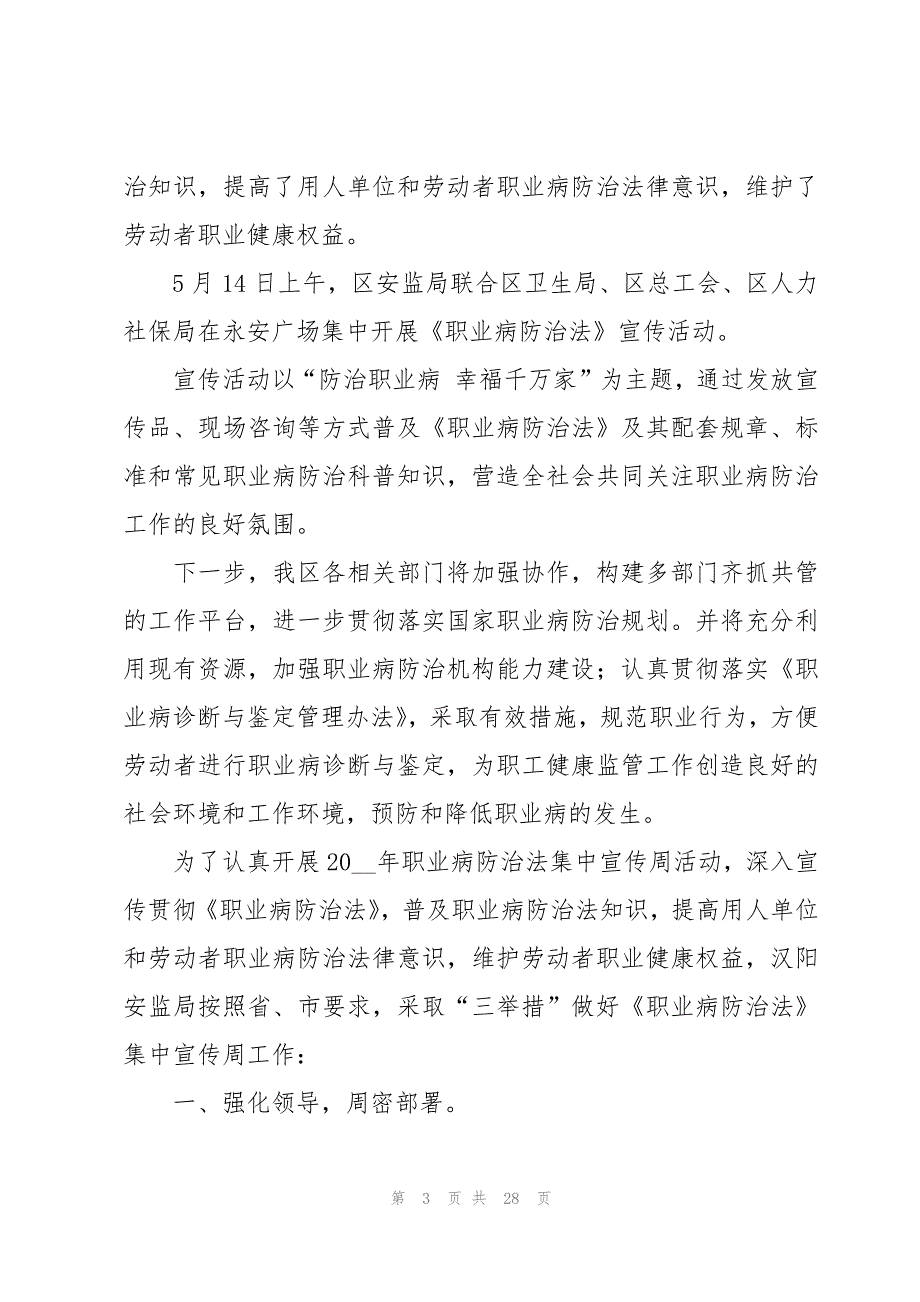 治知识，提高了用人单位和劳动者职业病防治法律意识，维护了
劳动者职业健康权益。
5 月 14 日上午，区安监局联合区卫生局、区总工会、区人力
社保局在永安广场集中开展《职业病防治法》宣传活动。
宣传活动以“防治职业病 幸福千万家”为主题，通过发放宣
传品、现场咨询等方式普及《职业病防治法》及其配套规章、标
准和常见职业病防治科普知识，营造全社会共同关注职业病防治
工作的良好氛围。
下一步，我区各相关部门将加强协作，构建多部门齐抓共管
的工作平台，进一步贯彻落实国家职业病防治规划。并将充分利
用现有资源，加强职业病防治机构能力建设；认真贯彻落实《职
业病诊断与鉴定管理办法》，采取有效措施，规范职业行为，方便
劳动者进行职业病诊断与鉴定，为职工健康监管工作创造良好的
社会环境和工作环境，预防和降低职业病的发生。
为了认真开展 20__年职业病防治法集中宣传周活动，深入宣
传贯彻《职业病防治法》，普及职业病防治法知识，提高用人单位
和劳动者职业病防治法律意识，维护劳动者职业健康权益，汉阳
安监局按照省、市要求，采取“三举措”做好《职业病防治法》
集中宣传周工作：
一、强化领导，周密部署。
第 3 页 共 28 页